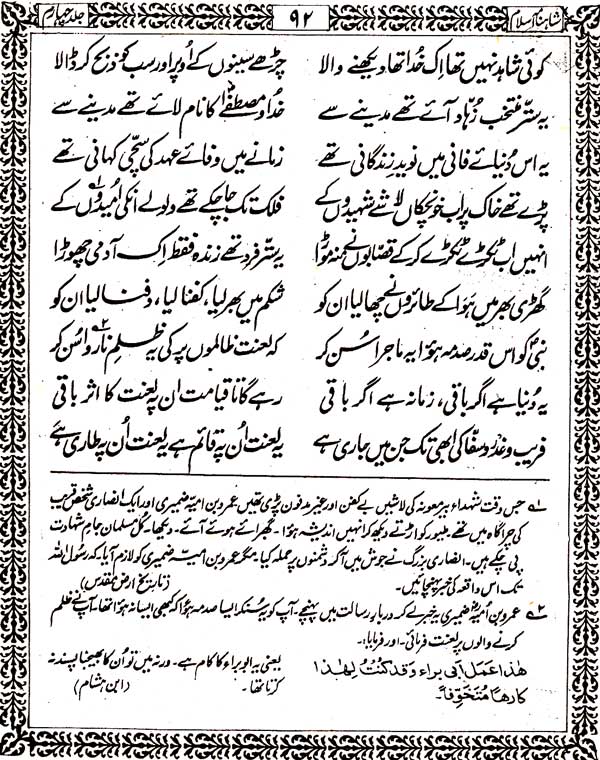 شاہنامہ اسلام
۹۲
جلد چہارم
کوئی شاہد نہیں تھا اِک خُدا تھا دیکھنے والا
چڑھے سینوں کے اُوپر اور سب کو ذبح کر ڈالا
یہ ستّر منتخب زُہّاد آئے تھے مدینے سے
خُدا و مصطفٰےؐ کا نام لائے تھے مدینے سے
یہ اس دُنیائے فانی میں نویدِ زندگانی تھے
زمانے میں وفائے عہد کی سچّی کہانی تھے
پڑے تھے خاک پر اب خونچکاں لاشے شہیدوں کے
فلک تک جا چکے تھے ولولے انکی اُمیدوں کے
انہیں اب ٹکڑے ٹکڑے کر کے قصّابوں نے مُنہ موڑا
یہ ستّر فرد تھے زندہ فقط اِک آدمی چھوڑا
گھڑی بھر میں ہَوا کے طائروں نے چھا لیا ان کو
شکم میں بھر لیا، کفنا لیا، دفنا لیا ان کو
نبیؐ کو اس قدر صدمہ ہوا یہ ماجرا سُن کر
کہ لعنت ظالموں پر کی یہ ظلمِ ناروا سُن کر
یہ دُنیا ہے اگر باقی، زمانہ ہے اگر باقی
رہے گا تا قیامت ان پہ لعنت کا اثر باقی
فریب و غدر و سفّاکی ابھی تک جن میں جاری ہے
یہ لعنت اُن پہ قائم ہے یہ لعنت اُن پہ طاری ہے
۱ جس وقت شہداء بیرِ معونہ کی لاشیں بے کفن اور غیر مدفون پڑی تھیں عمرو بن امیہ ضمیری اور ایک انصاری شخص قریب
کی چراگاہ میں تھے۔ طیور کو اڑتے دیکھ کر انہیں اندیشہ ہؤا۔ گھبرائے ہوئے آئے۔ دیکھا۔ کُل مسلمان جامِ شہادت
پی چکے ہیں۔ انصاری بزرگ نے جوش میں آکر دشمنوں پر حملہ کیا۔ مگر عمرو بن امیہ ضمیری کو لازم آیا۔ کہ رسول اللہ
تک اس واقعہ کی خبر پہنچائیں۔ (تاریخ ارضِ مقدس)
۲ عمرو بن اُمیہؓ ضمیری یہ خبر لے کر دربارِ رسالت میں پہنچے۔ آپ کو یہ سُنکر ایسا صدمہ ہؤا کہ کبھی ایسا نہ ہؤا تھا۔ آپؐ نے ظلم
کرنے والوں پر لعنت فرمائی۔ اور فرمایا:
ھٰذا عَمَل اَبی براء وَقد کُنتُ لِھٰذا
کارھاً مُتَخَوِّفاً۔
یعنی یہ ابو براء کا کام ہے۔ ورنہ میں تو اُن کا بھیجنا پسند نہ
کرتا تھا۔ (ابن ہشام)